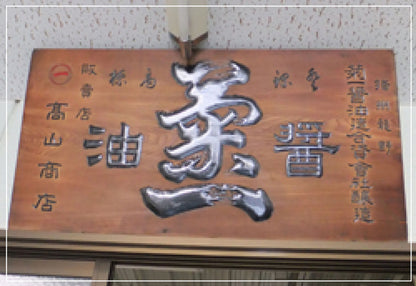 播州龍野
菊一醤油造合資會社醸造
登録商標
菊一
醤油
販賣店
㊀
髙山商店